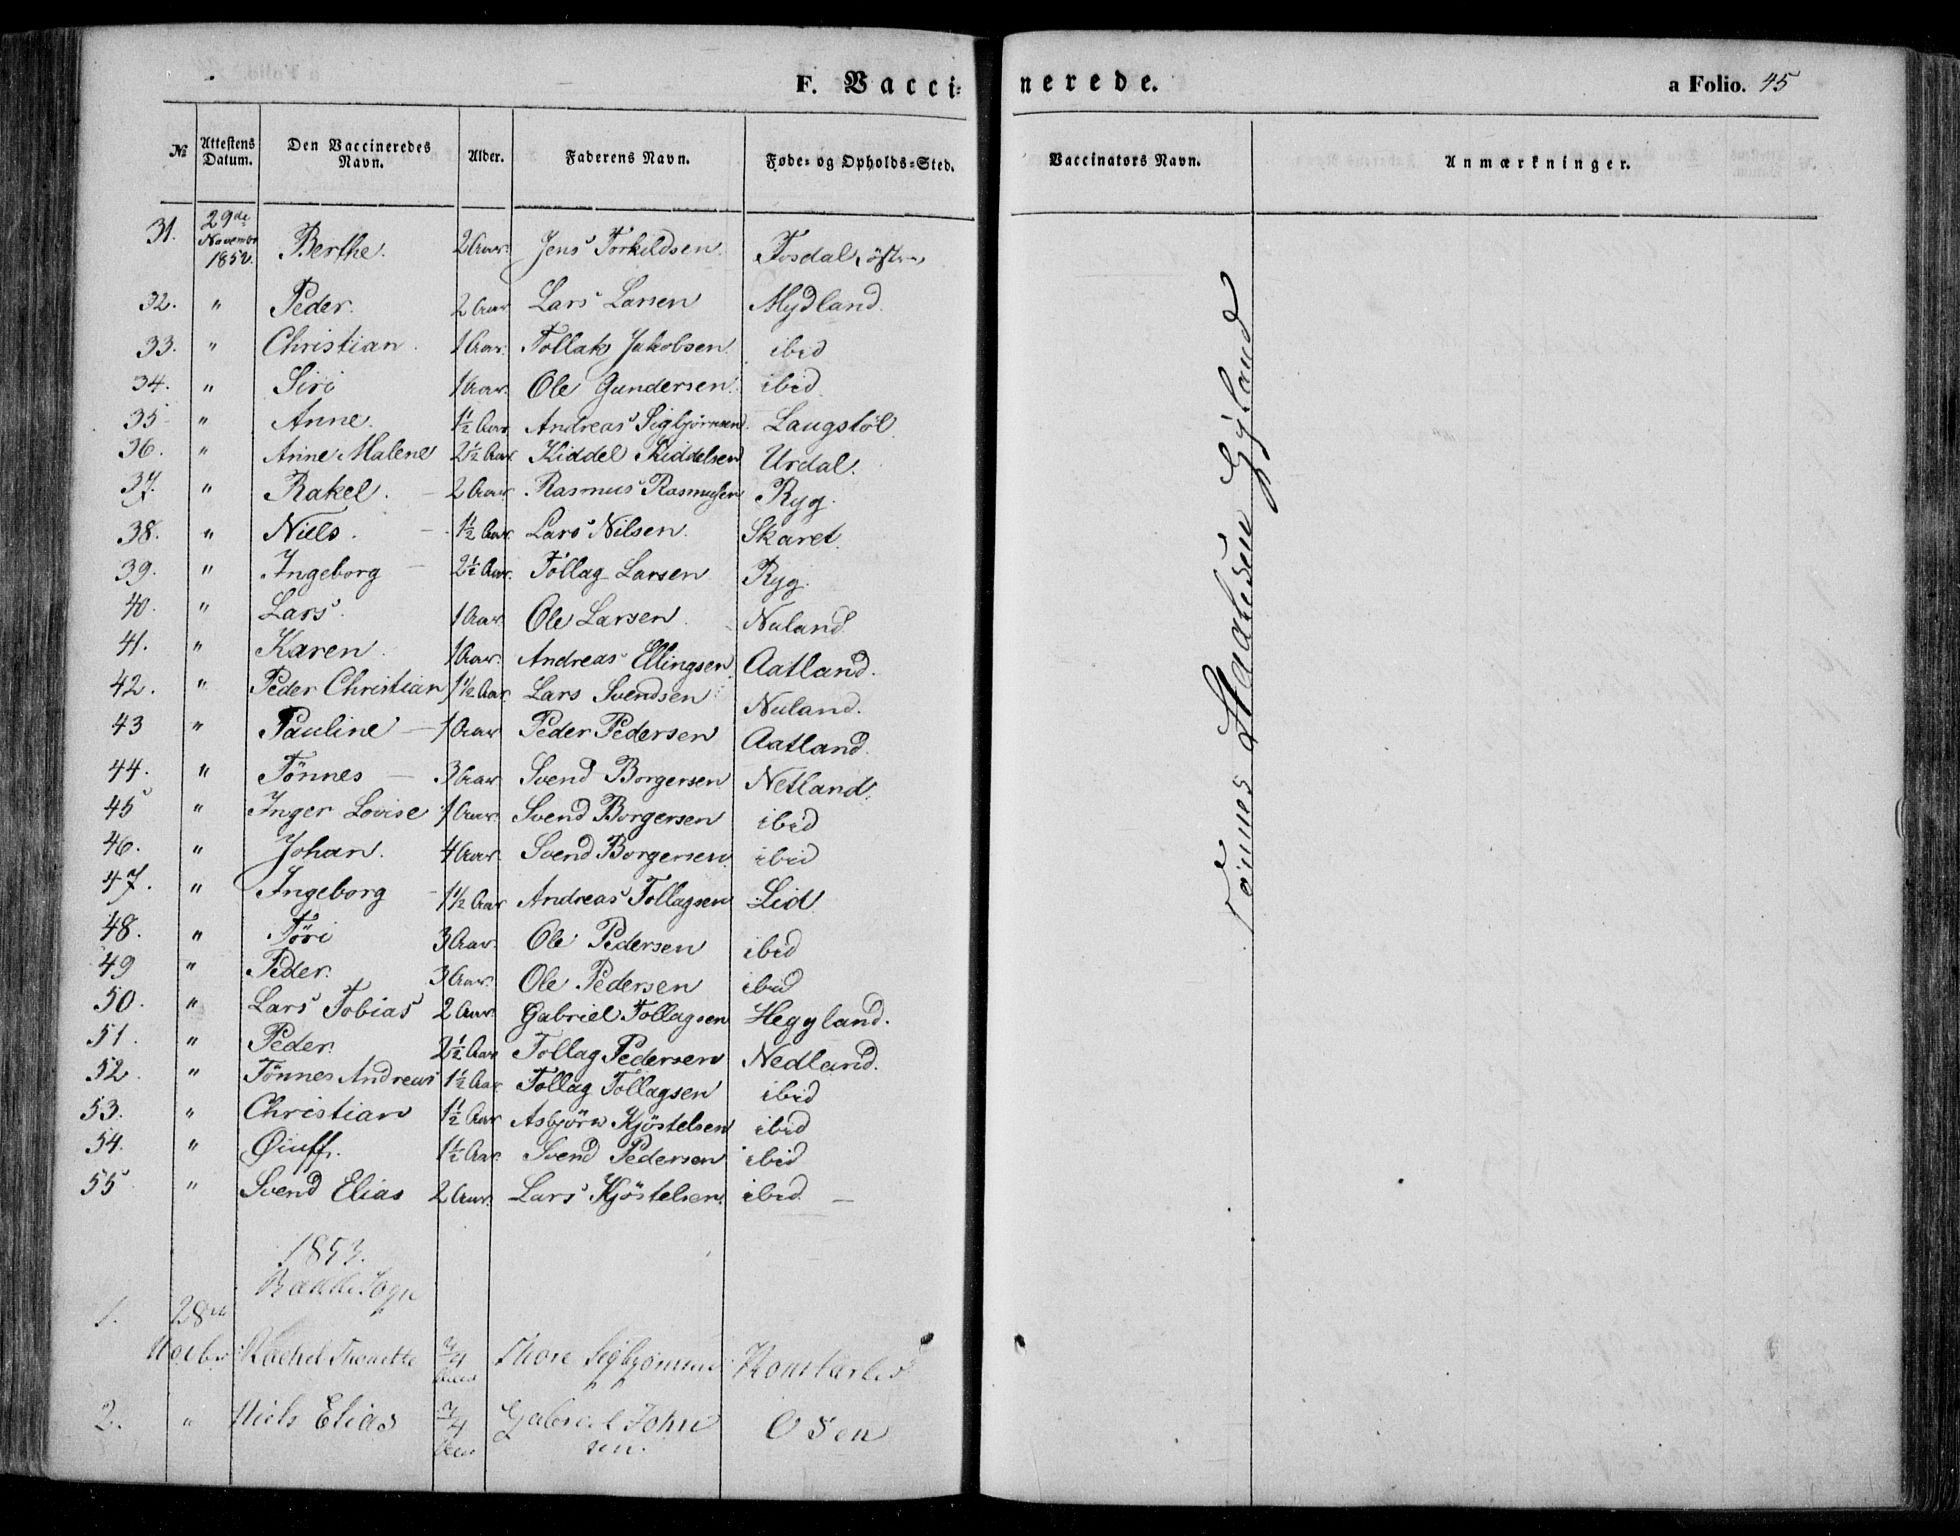 F. Vaccinerede. a Folio. 45
№ Attestens Datum. Den Vaccineredes Navn. Alder. Faderens Navn. Føde- og Opholds-Sted. Vaccinators Navn. Anmærkninger.
31. 29de Novembr 1852. Berthe. 2 Aar. Jens Torkildsen. Tosdal, östre
32. " Peder. 2 Aar Lars Larsen Mydland.
33. " Christian. 1 Aar. Tollak Jakobsen ibid
34. " Siri 1 Aar. Ole Gundersen ibid.
35 " Anne. 1½ Aar Andreas Sigbjörnsen. Laugstöl.
36. " Anne Malene 2½ Aar Kiddel Kiddelsen Urdal.
37. " Rakel. - 2 Aar Rasmus Rasmussen Ryg.
38. " Niels. - 1½ Aar Lars Nilsen. Skaret.
39. " Ingeborg - 2½ Aar. Tollag Larsen Ryg.
40. " Lars. 1 Aar. Ole Larsen. Nuland.
41. " Karen. 1 Aar. Andreas Ellingsen. Aatland.
42. " Peder Christian 1½ Aar. Lars Svendsen Nuland.
43 " Pauline - 1 Aar Peder Pedersen Aatland.
44. " Tönnes - 3 Aar Svend Borgersen Netland.
45 " Inger Lovise 1 Aar. Svend Borgersen ibid
46. " Johan. 4 Aar. Svend Borgersen. ibid
47. " Ingeborg - 1½ Aar Andreas Tollagsen Lid
48. " Töri 3 Aar. Ole Pedersen ibid
49 " Peder. 3 Aar. Ole Pedersen ibid
50. " Lars Tobias 2 Aar. Gabriel Tollagsen Heggland.
51. " Peder. 2½ Aar Tollag Pedersen Nedland.
52. " Tönnes Andreas 1½ Aar Tollag Tollagsen ibid
53. " Christian 1½ Aar Asbjörn Kjöstelsen ibid
54. " Öiuff. 1½ Aar. Svend Pedersen ibid
55 " Svend Elias 2 Aar. Lars Kjöstelsen. ibid. -
Tönnes Staalesen Gyland
1853.
Bakke Sogn
1. 28de
Rachel Thonette ¾ Thore Sigbjörnsen
2. " Niels Elias ¾ Gabriel Johnsen. Osen